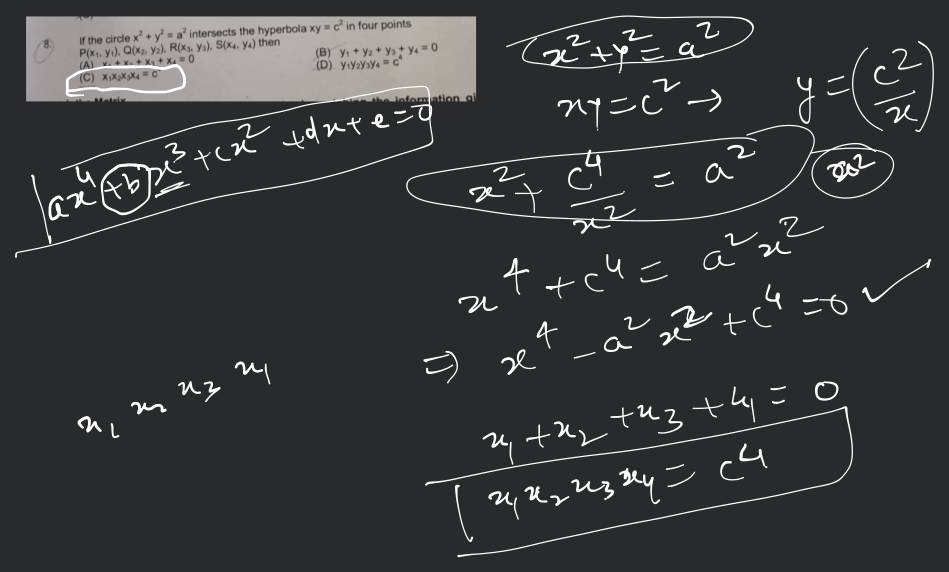 8. If the circle x² + y² = a² intersects the hyperbola xy = c² in four points
P(x₁, y₁), Q(x₂, y₂), R(x₃, y₃), S(x₄, y₄) then
(A) x₁ + x₂ + x₃ + x₄ = 0
(B) y₁ + y₂ + y₃ + y₄ = 0
(C) x₁x₂x₃x₄ = c
(D) y₁y₂y₃y₄ = c⁴
the information
ax⁴ + bx³ + cx² + dx + e = 0
x² + y² = a²
xy = c² → y = (c²/x)
x² + c⁴/x² = a²
x⁴ + c⁴ = a²x²
⇒ x⁴ - a²x² + c⁴ = 0 ✓
x₁ x₂ x₃ x₁
x₁ + x₂ + x₃ + 4₁ = 0
x₁x₂x₃x₄ = c⁴